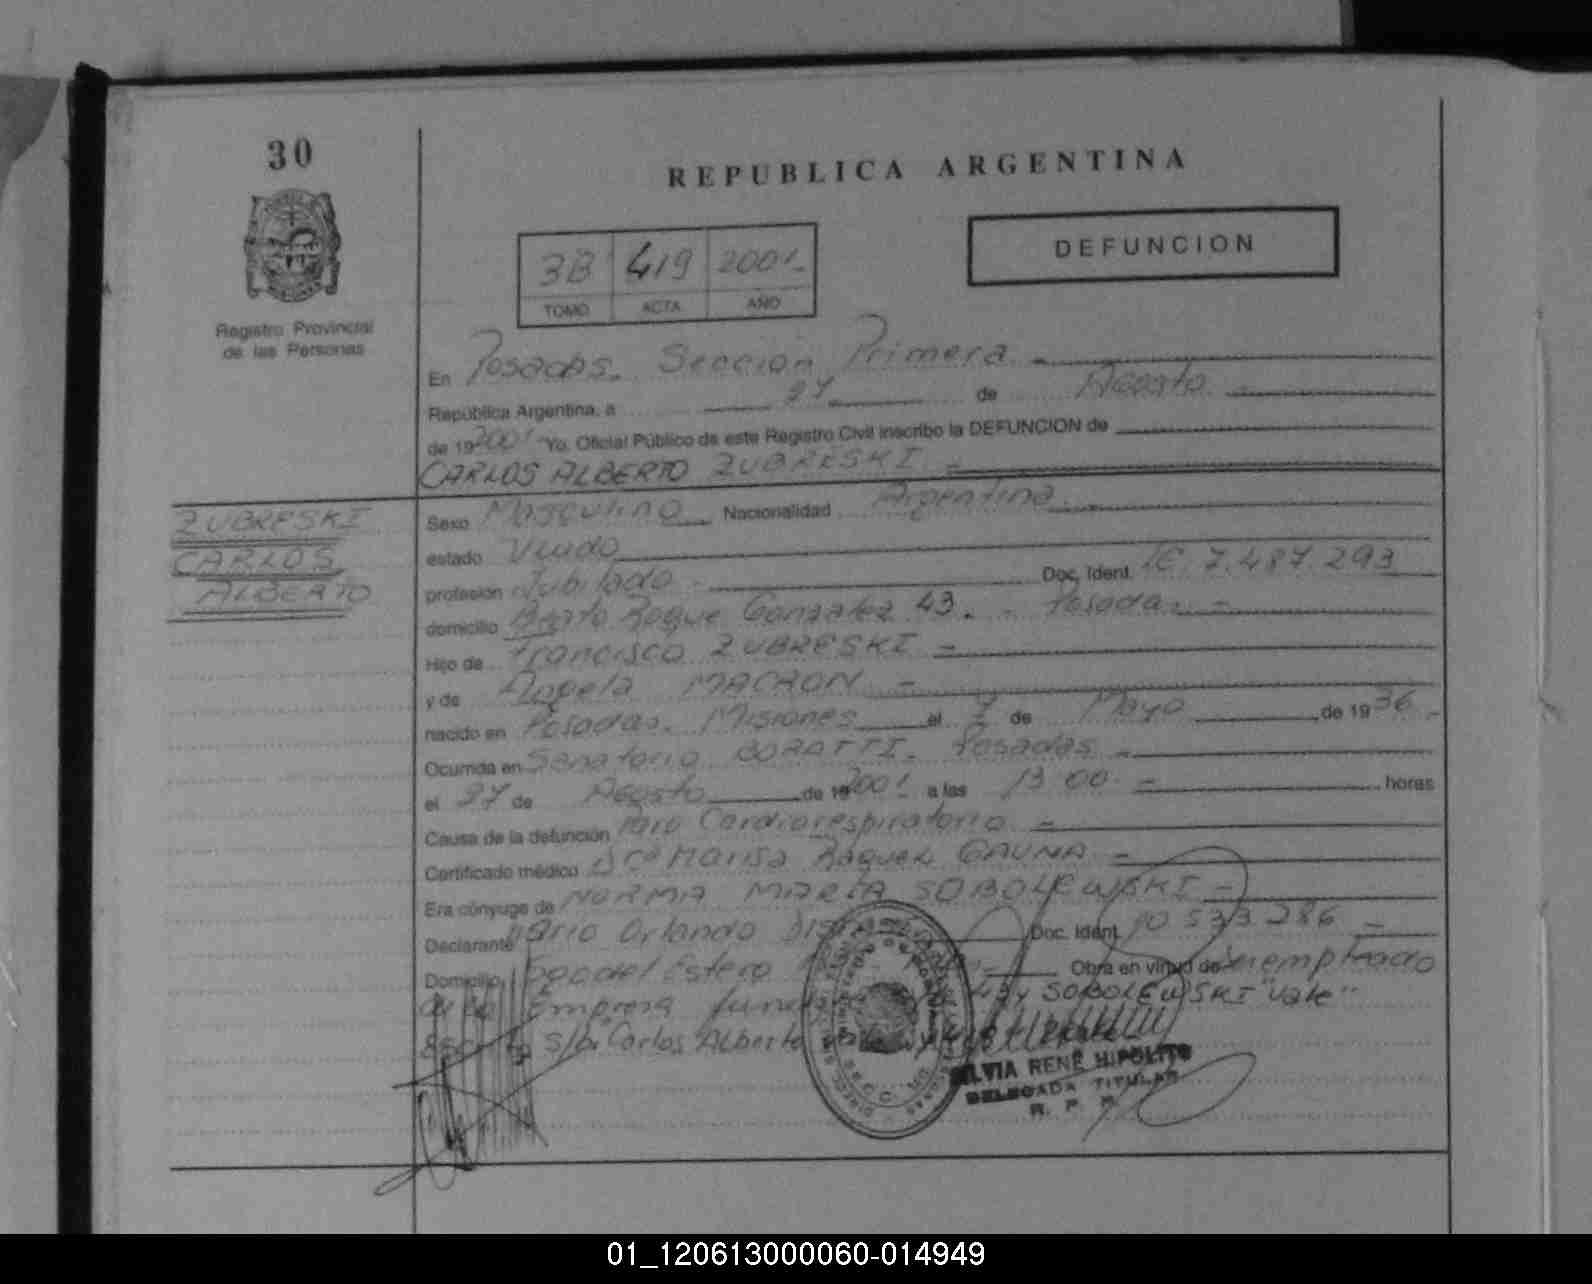 30
REPUBLICA ARGENTINA
DEFUNCION
3B 419 2001.-
TOMO ACTA AÑO
Registro Provincial
de las Personas
En Posadas. Sección Primera
República Argentina, a 27 de Agosto
de 19 2001 Yo, Oficial Público de este Registro Civil inscribo la DEFUNCION de
CARLOS ALBERTO ZUBRESKI
ZUBRESKI
CARLOS
ALBERTO
Sexo Masculino Nacionalidad Argentina
estado Viudo
profesión Jubilado Doc. Ident. LE. 7.487.293
domicilio Beato Roque Gonzalez 43. - Posadas
Hijo de Francisco ZUBRESKI
y de Angela MACRON
nacido en Posadas. Misiones el 7 de Mayo de 1936
Ocurrida en Sanatorio BORATTI. Posadas
el 27 de Agosto de 19 2001 a las 13 00 horas
Causa de la defunción Paro Cardiorespiratorio
Certificado médico Dra Marisa Raquel GAUNA
Era cónyuge de NORMA MARIA SOBOLEWSKI
Declarante Mario Orlando Doc. Ident. 10.533.286
Domicilio Estero Obra en virtud de ser empleado
de la Empresa SOBOLEWSKI "Vale"
S/b: Carlos Alberto
SILVIA RENE HIPOLITO
DELEGADA TITULAR
R. P. P.
01_120613000060-014949